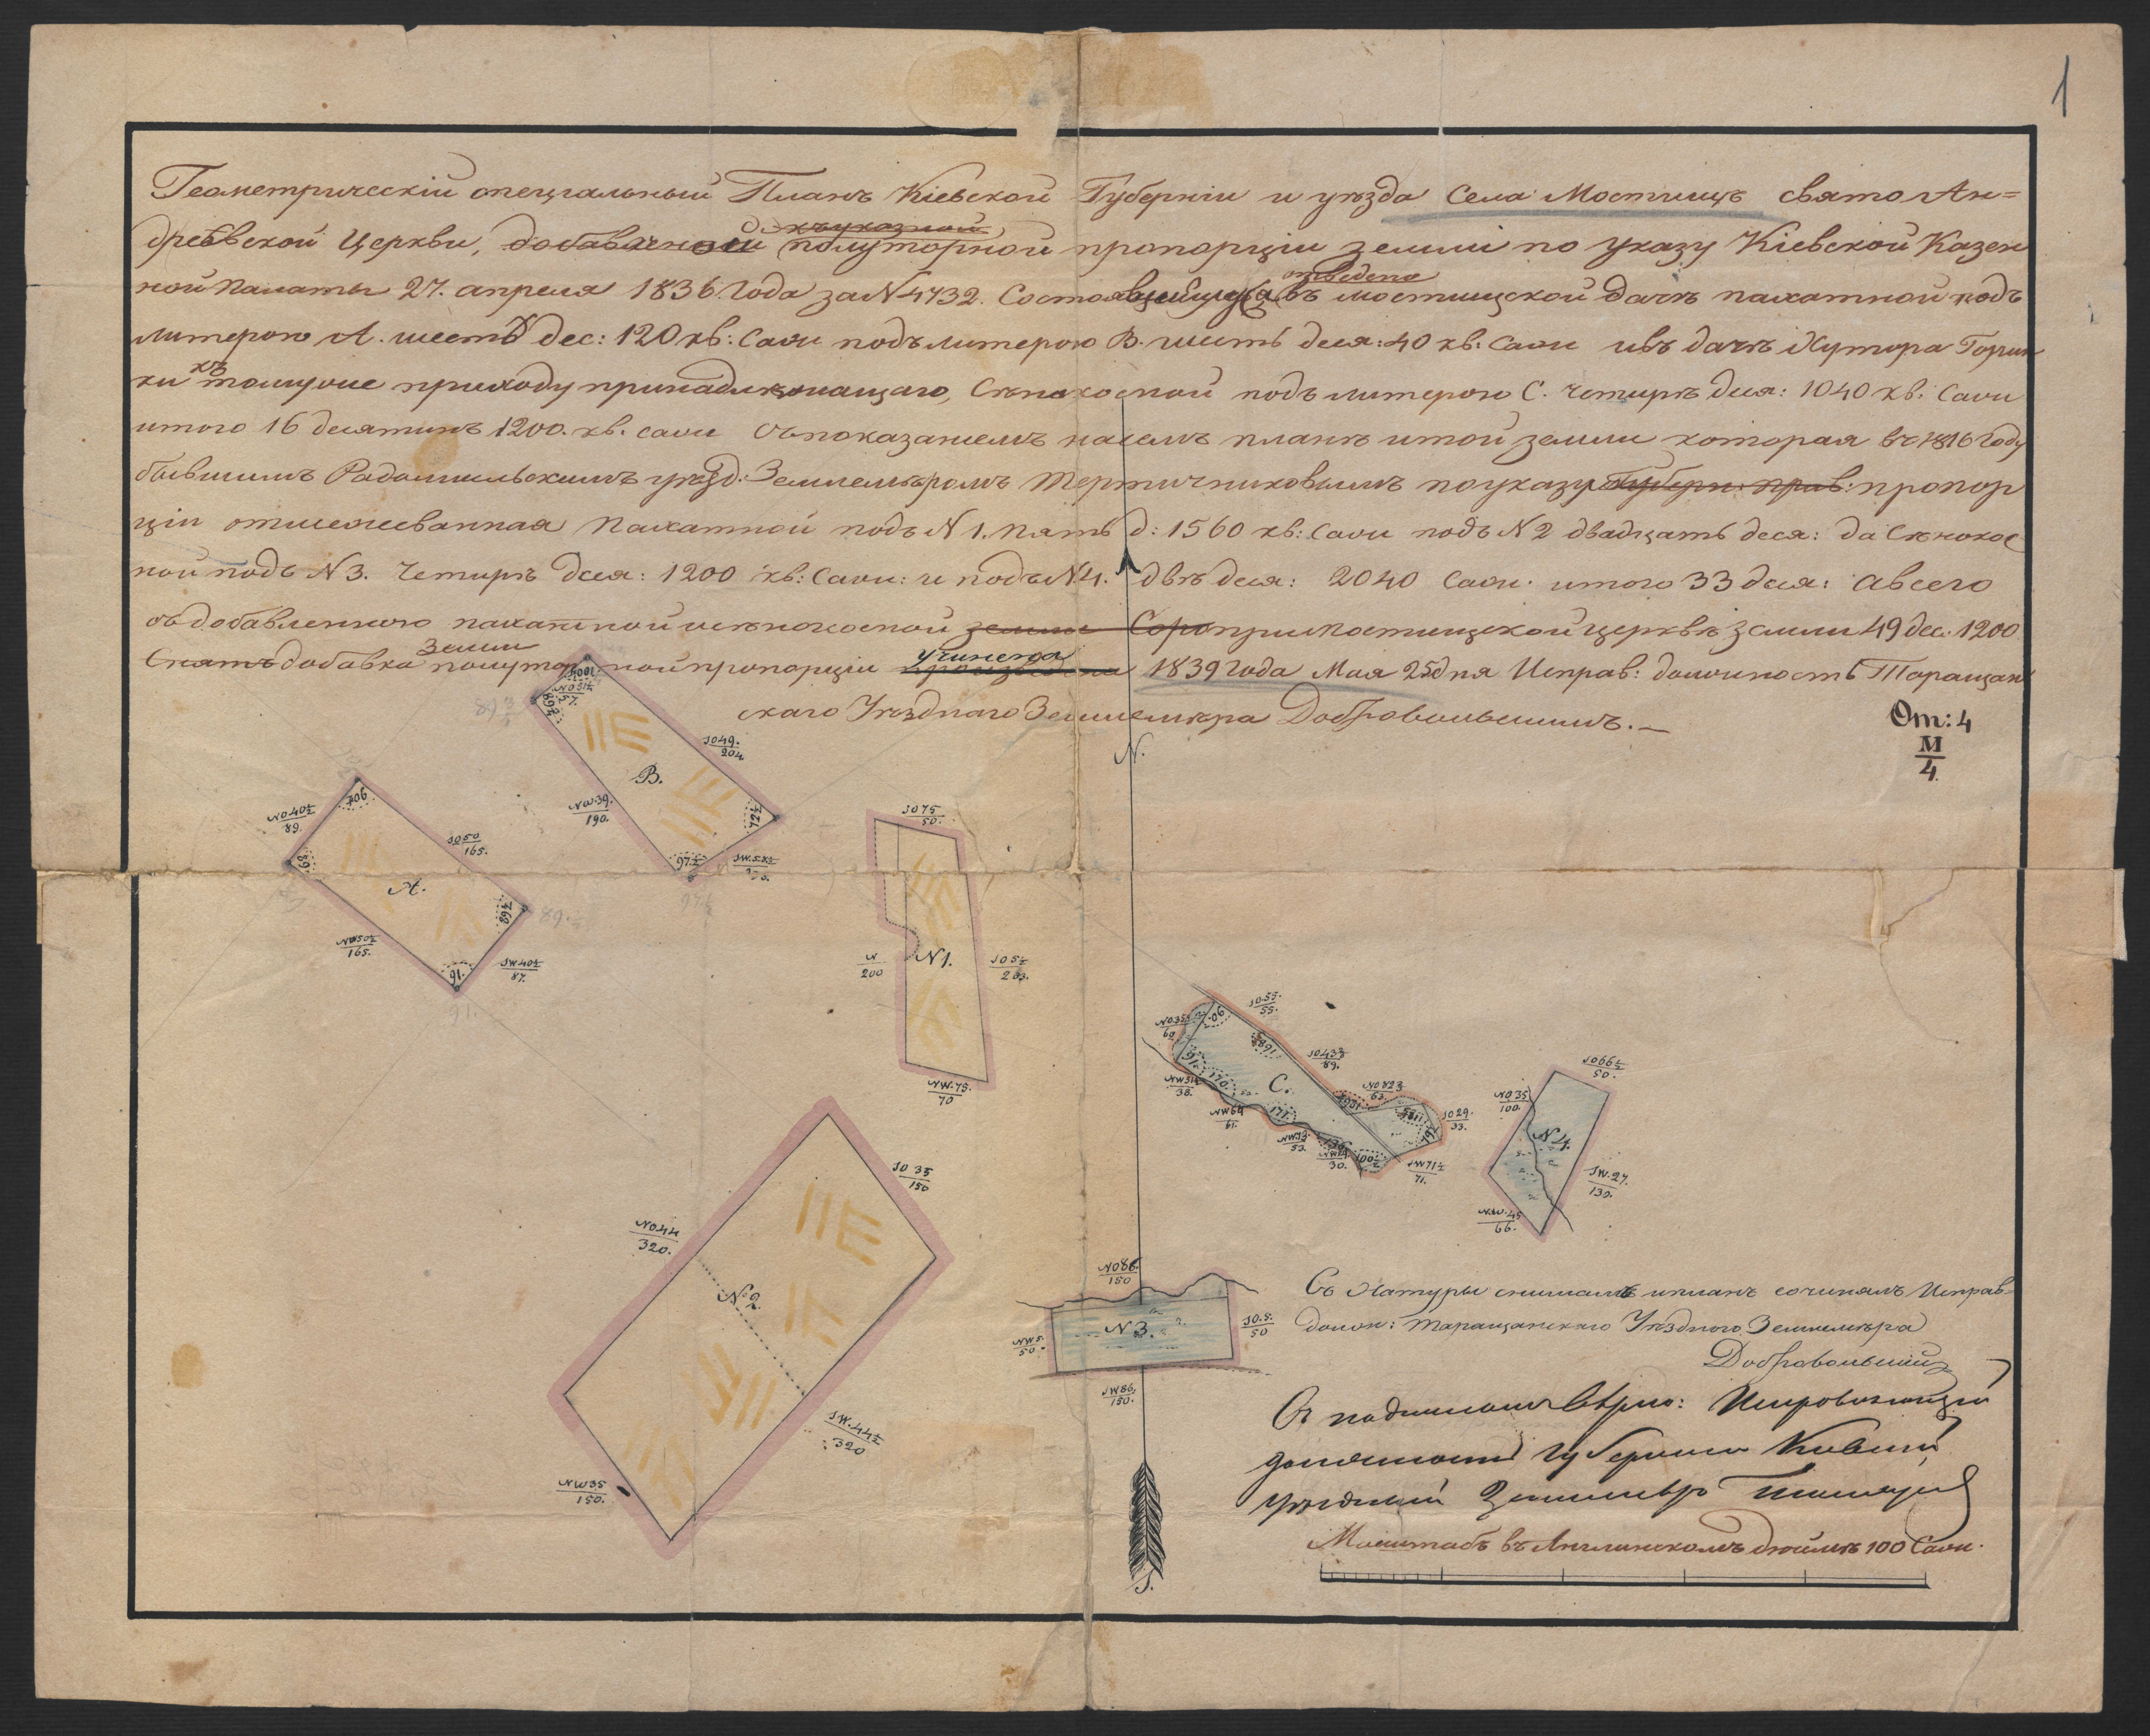 1
Геометрическій спеціальный Планъ Кіевской Губерніи и уѣзда Села Мостищъ свято Ан=
дреевской Церкви, добавочной къ указной полуторной пропорціи земли по указу Кіевской Казен
ной Палаты 27. апреля 1836 Года за N 4732. отведено въ мостищской дачѣ пахатной подъ
литерою А. шесть дес: 120 кв: Саж подъ литерою В. шесть деся: 40 кв: Саж ивъ дачѣ Хутора Горин
ки къ томуже приходу принадлежащаго, Сѣнокосной подъ литерою С. четирѣ деся: 1040 кв: Саж
итого 16 десятинъ 1200. кв. саж съ показаніемъ на семъ планѣ итой земли которая въ 1816 Году
бывшимъ Радомисльскимъ уѣзд: Землемѣромъ Тертичниковымъ по указу Губерн: прав: пропор
ціи отмежеванная Пахатной подъ N 1. Пять д: 1560 кв: Саж подъ N 2 двадцать деся: да Сѣнокос
ной подъ N 3. Четирѣ деся: 1200 кв: Саж: и подъ N 4. двѣ деся: 2040 Саж. итого 33 деся: а всего
съ добавленною пахатной исѣнокосной земли при Мостищской церквѣ земли 49 дес: 1200
Снятъ добавка Земли полуторной пропорціи учинена 1839 года Мая 25 дня Исправ: должность Таращан
скаго Уѣзднаго Землемѣра Добровольскимъ. —
От: 4
М
4.
N.
NO 31½
57.
B.
SO 49.
204
NW. 39.
190.
72½
97½
SW. 58½
NO 40½
89.
90½
SO 50
165.
89.
A.
89½
NW 50½
165.
91.
SW 40½
87.
SO 75
50.
N
200
N 1.
SO 5½
203.
NW. 75.
70
SO. 55.
55.
NO 35½
69
90.
91.
170.
C.
SO 43¾
89.
NO 82¾
62
SO 29.
33.
NW 51½
38.
NW 64
61.
171.
NW 73.
53.
NW 29.
30.
100½
SW 71½
71.
SO 66½
50.
NO 35
100.
N 4.
SW. 27.
130.
NW. 45
66.
SO 35
150
NO 44
320.
N 2.
SW. 44½
320
NW 35
150.
NO 86.
150
N 3.
NW 5.
50.
SO. 5.
50
SW 86.
150.
Съ Натуры снималъ ипланъ сочинялъ Исправ=
долж: Таращанскаго Уѣзднаго Землемѣра
Добровольскій
Съ подлинымъ вѣрно: Исправляющій
должность Губернскаго Кіевскій
уѣздный Землемѣръ
Масштабъ въ Англинскомъ дюймѣ 100 Саж.
S.